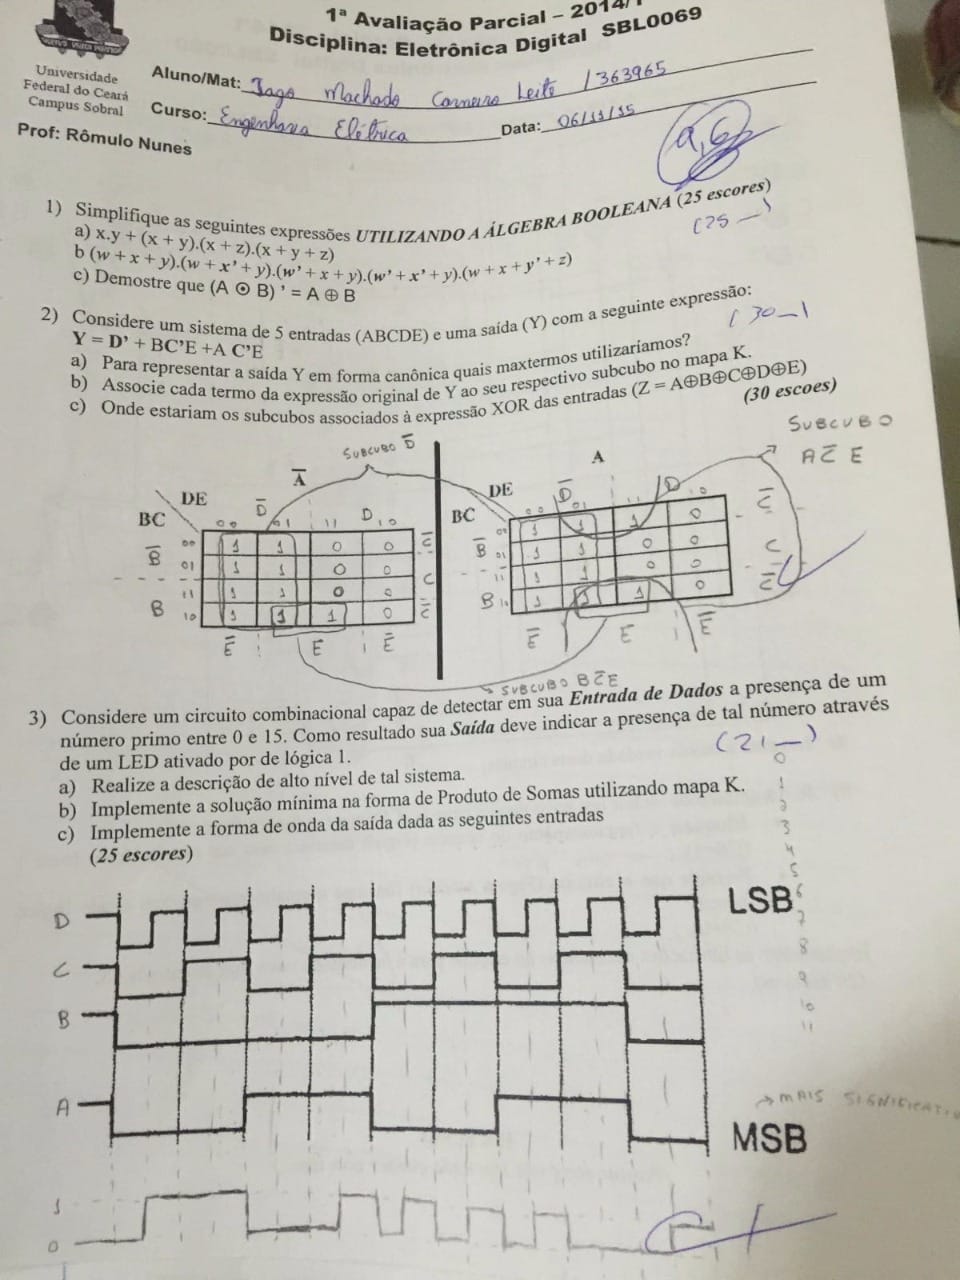 1ª Avaliação Parcial – 2014/1
Disciplina: Eletrônica Digital SBL0069
Universidade
Federal do Ceará
Campus Sobral
Aluno/Mat: Iago Machado Carneiro Leite / 363965
Curso: Engenharia Elétrica Data: 06/11/15
Prof: Rômulo Nunes
9,6
1) Simplifique as seguintes expressões UTILIZANDO A ÁLGEBRA BOOLEANA (25 escores)
(25 —)
a) x.y + (x + y).(x + z).(x + y + z)
b (w + x + y).(w + x' + y).(w' + x + y).(w' + x' + y).(w + x + y' + z)
c) Demostre que (A ⊙ B) ' = A ⊕ B
2) Considere um sistema de 5 entradas (ABCDE) e uma saída (Y) com a seguinte expressão:
Y = D' + BC'E +A C'E
(30 —)
a) Para representar a saída Y em forma canônica quais maxtermos utilizaríamos?
b) Associe cada termo da expressão original de Y ao seu respectivo subcubo no mapa K.
c) Onde estariam os subcubos associados à expressão XOR das entradas (Z = A⊕B⊕C⊕D⊕E)
(30 escoes)
SUBCUBO D̅
SUBCUBO
A C̅ E
A̅
A
DE D̅ D
BC 00 01 11 10
B̅ 00 1 1 0 0 C̅
01 1 1 0 0 C
B 11 1 1 0 0
10 1 1 1 0 C̅
E̅ E E̅
DE D̅ D
BC 00 01 11 10
B̅ 00 1 1 1 0 C̅
01 1 1 0 0 C
B 11 1 1 0 0
10 1 1 1 0 C̅
E̅ E E̅
SUBCUBO BC̅E
3) Considere um circuito combinacional capaz de detectar em sua Entrada de Dados a presença de um
número primo entre 0 e 15. Como resultado sua Saída deve indicar a presença de tal número através
de um LED ativado por de lógica 1.
(21 —)
a) Realize a descrição de alto nível de tal sistema.
b) Implemente a solução mínima na forma de Produto de Somas utilizando mapa K.
c) Implemente a forma de onda da saída dada as seguintes entradas
(25 escores)
0
1
2
3
4
5
6
7
8
9
10
11
D LSB
C
B
A MSB
→ MAIS
1
0